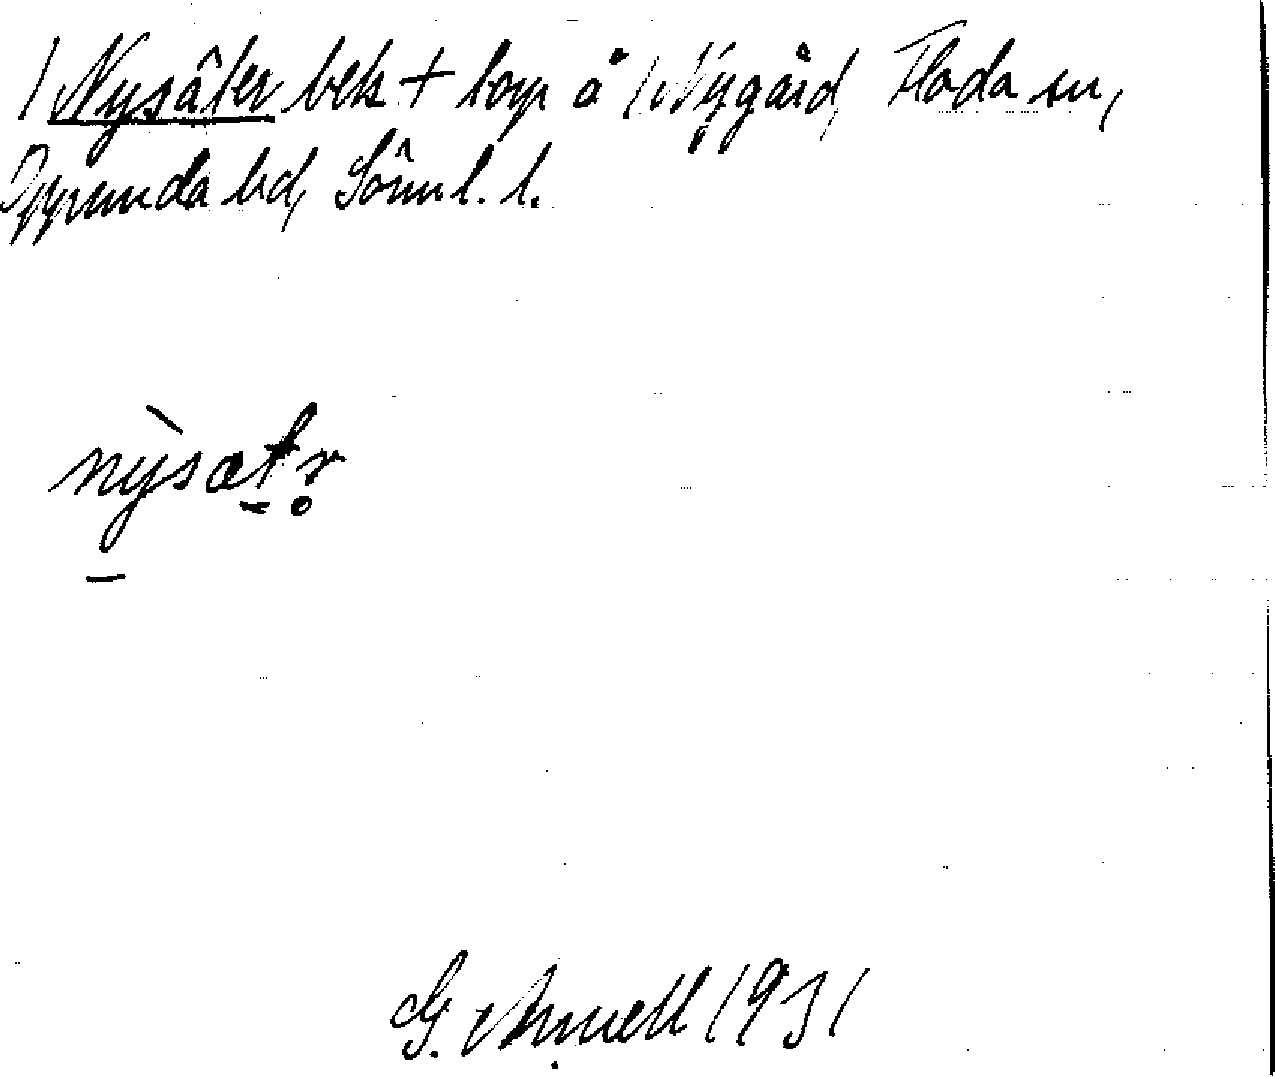 / Nysäter bek + torp å /Nygård, Floda sn,
Oppunda hd, Sörml. l.
nỳsætr
G. Arnell 1931